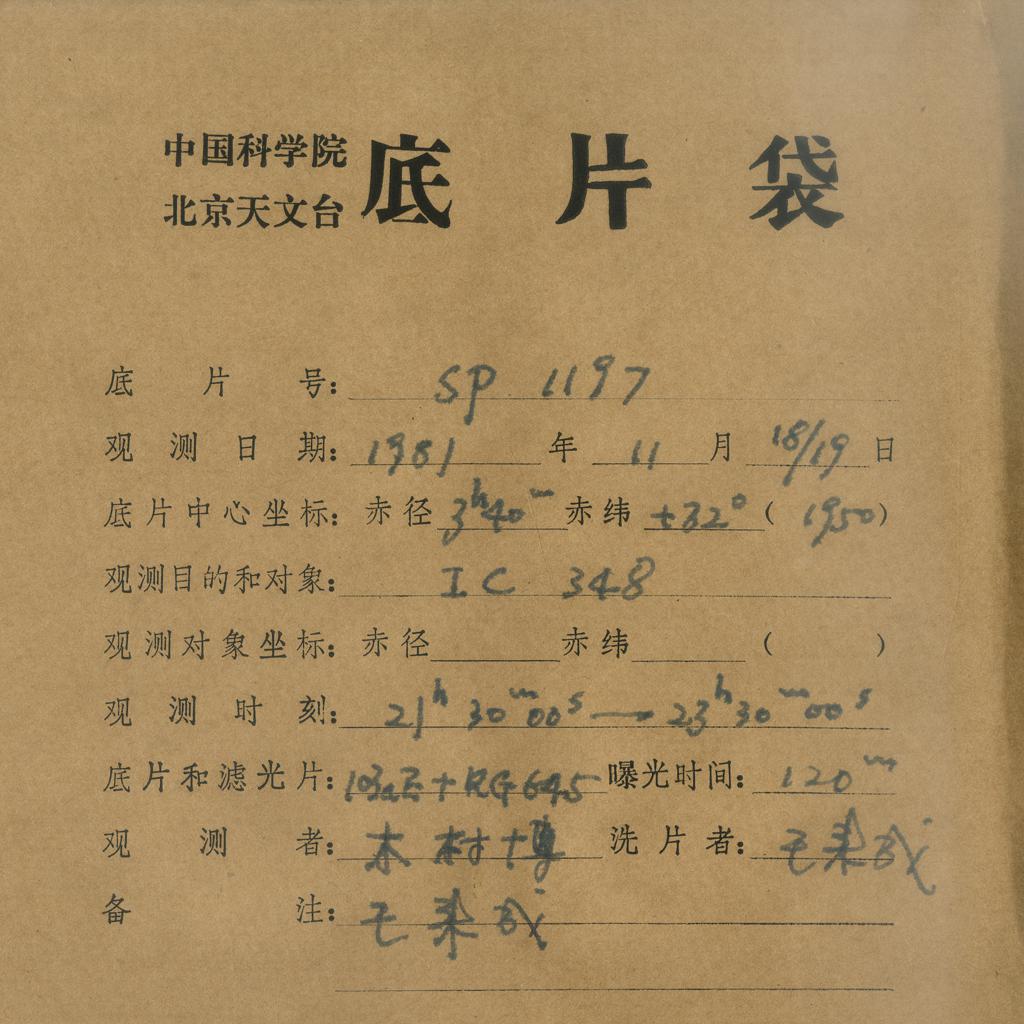 中国科学院
北京天文台
底片袋
底片号: SP 1197
观测日期: 1981 年 11 月 18/19 日
底片中心坐标: 赤径 3h40m 赤纬 +32° ( 1950)
观测目的和对象: IC 348
观测对象坐标: 赤径 赤纬 ( )
观测时刻: 21h30m00s — 23h30m00s
底片和滤光片: 103aE+RG645 曝光时间: 120m
观测者: 木村博 洗片者:
备注: